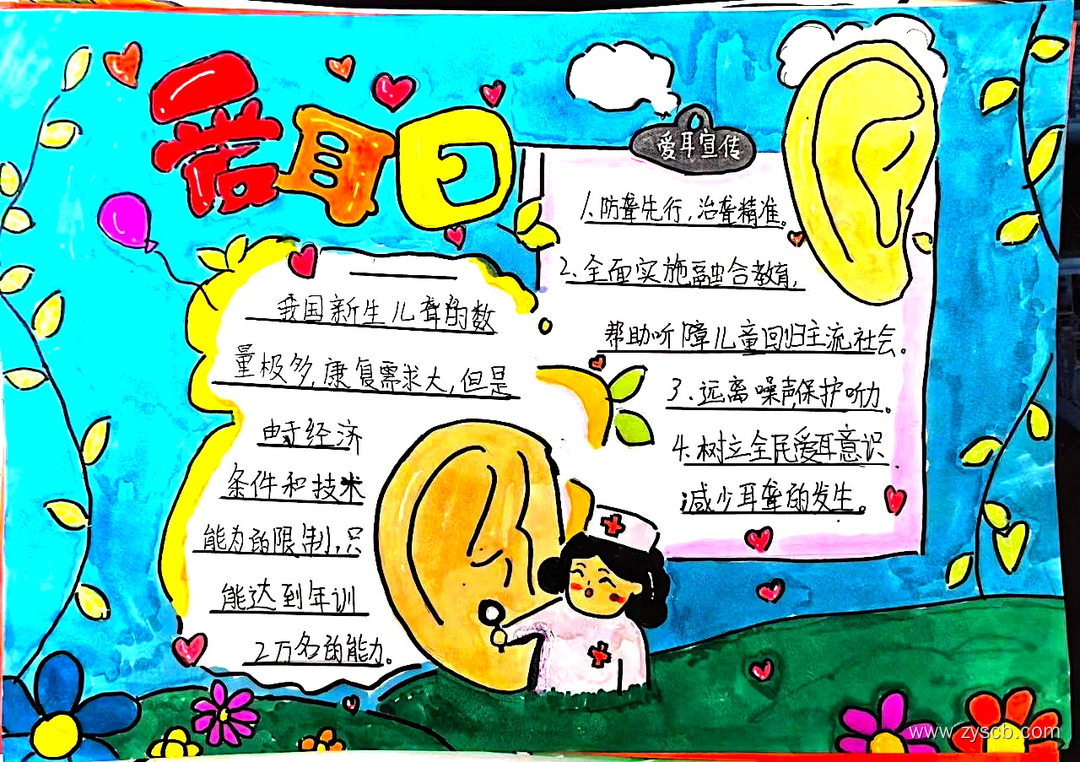 爱耳日
我国新生儿聋的数
量极多,康复需求大,但是
由于经济
条件和技术
能力的限制,只
能达到年训
2万名的能力。
爱耳宣传
1.防聋先行,治聋精准。
2.全面实施融合教育,
帮助听障儿童回归主流社会。
3.远离噪声,保护听力。
4.树立全民爱耳意识
减少耳聋的发生。
www.zyscb.com